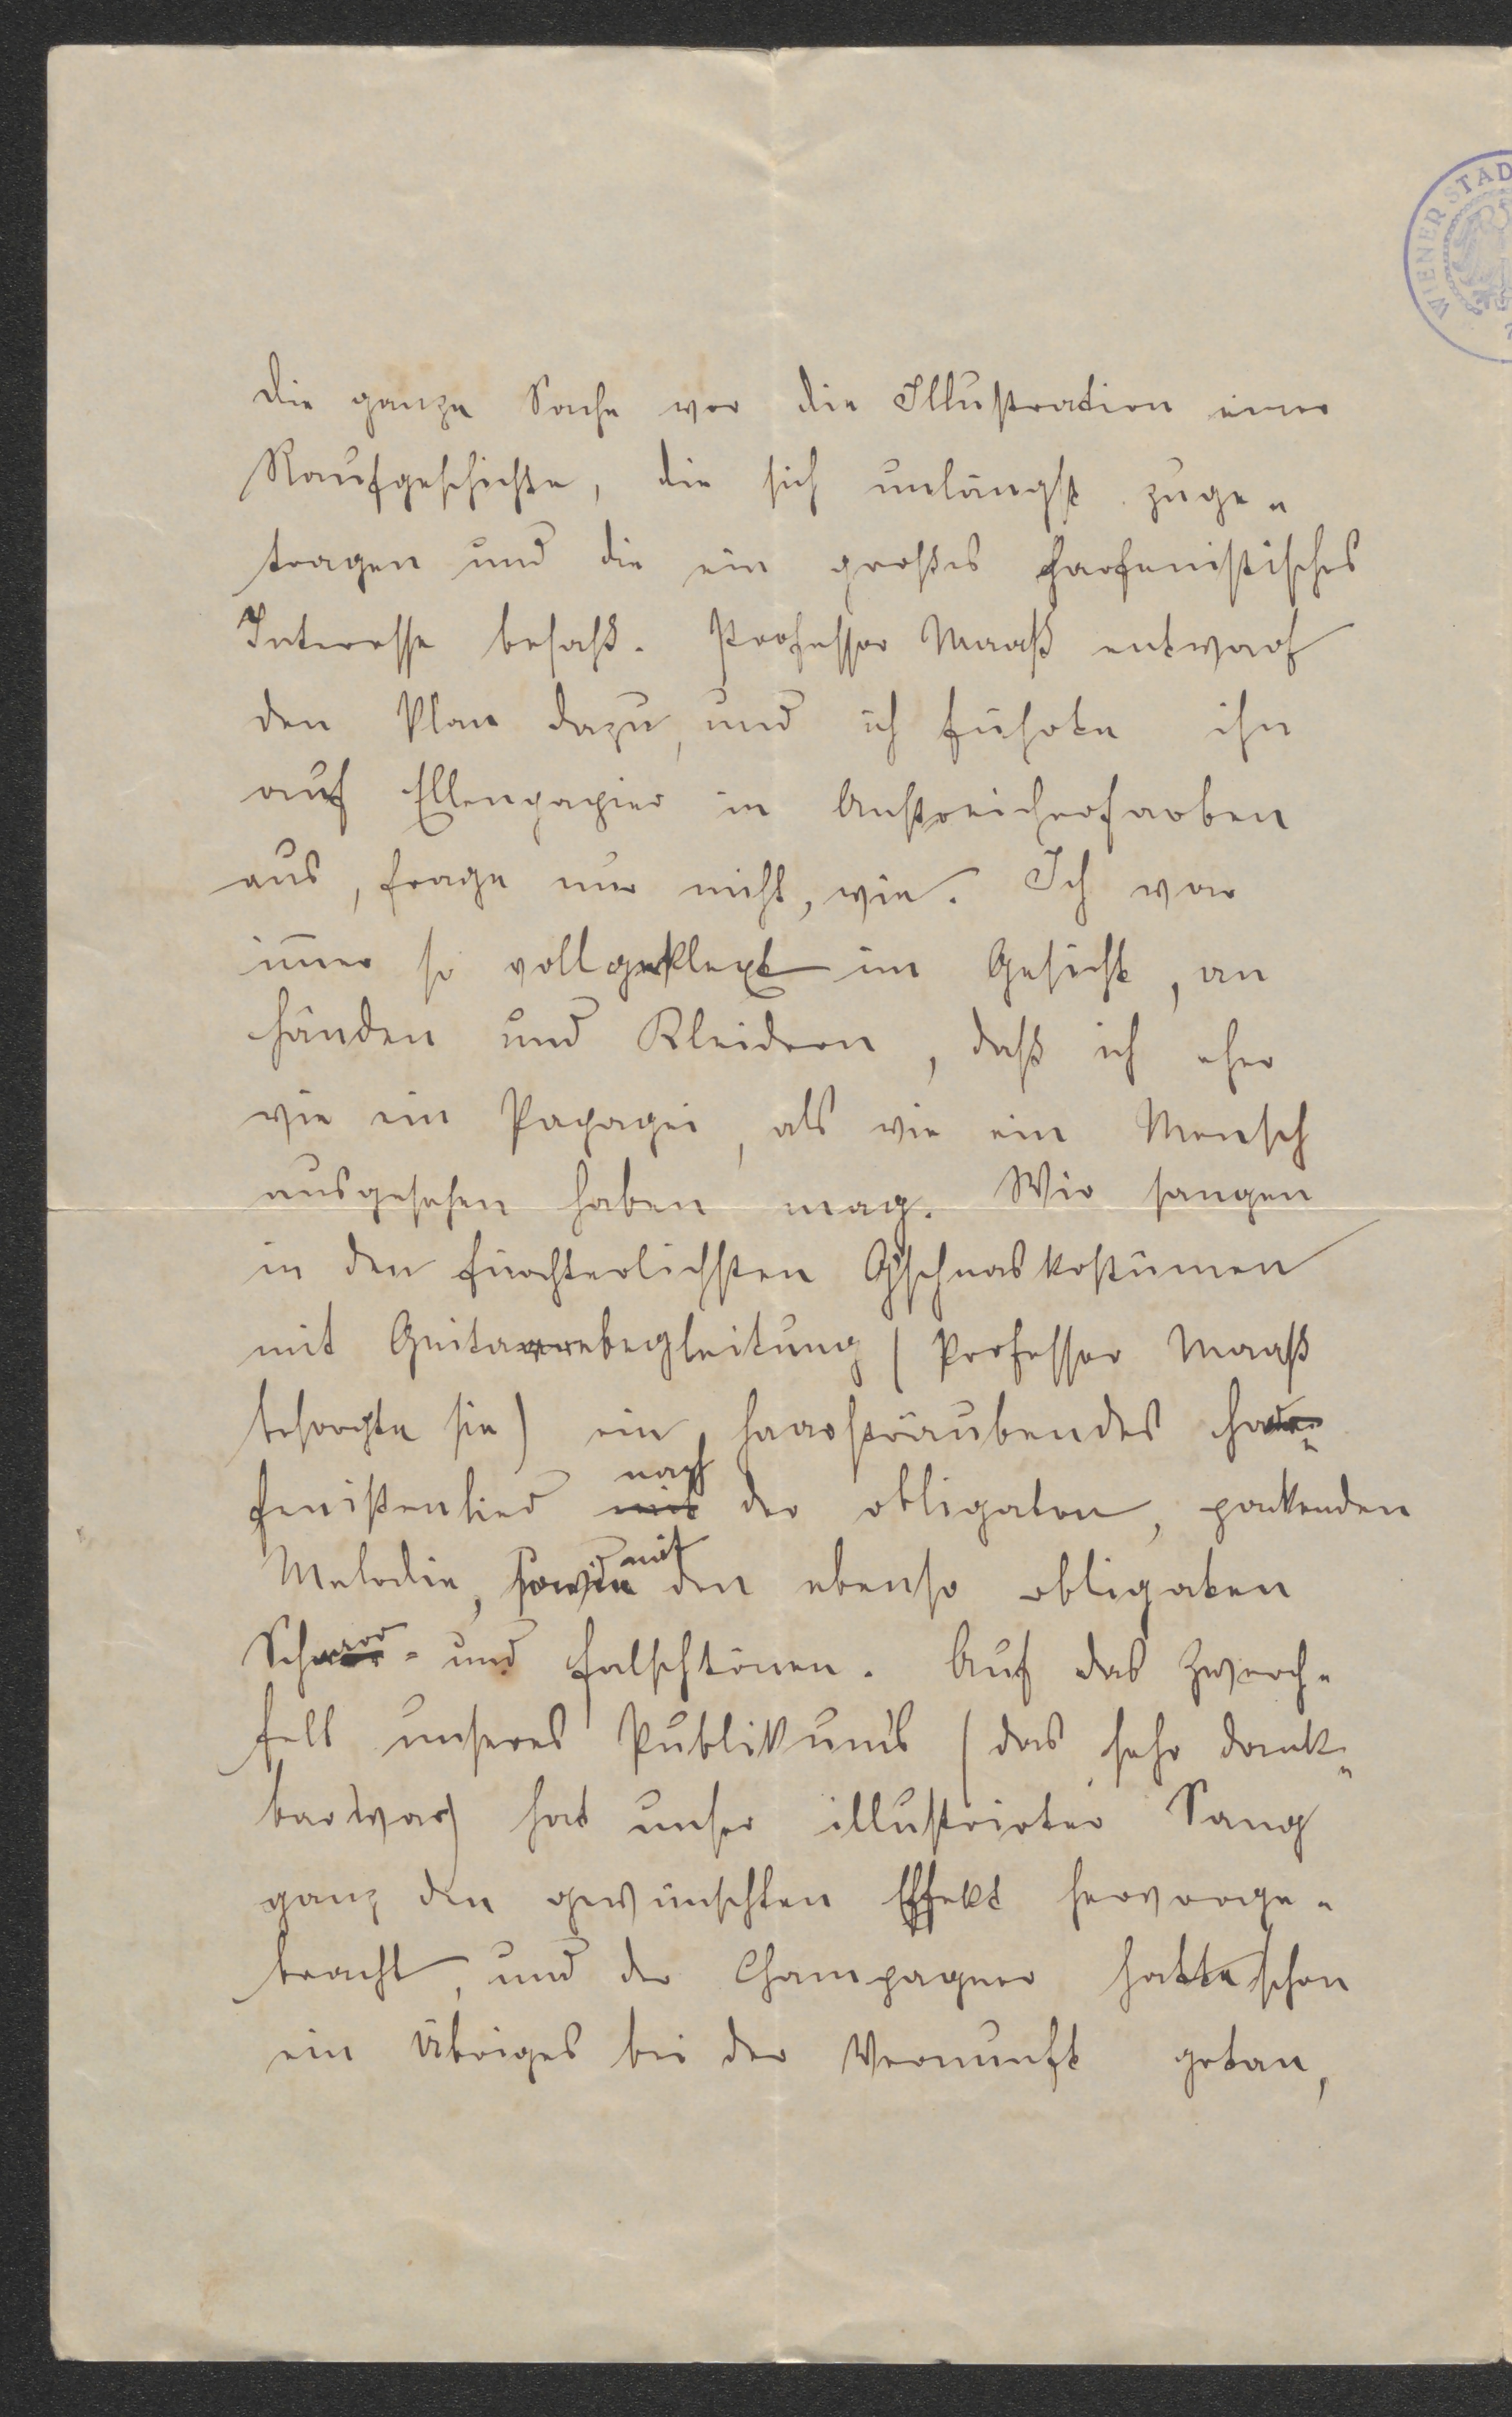 WIENER STAD
die ganze Sache war die Illustration einer
Raufgeschichte, die sich unlängst zuge-
tragen und die ein großes harfenistisches
Interesse besaß. Professor Maaß entwarf
den Plan dazu, und ich führte ihn
auf Ellenpapier in Anstreicherfarben
aus, frage nur nicht, wie. Ich war
im̅er so vollgeklext im Gesicht, an
Händen und Kleidern, daß ich eher
wie ein Papagei, als wie ein Mensch
ausgesehen haben mag. Wir sangen
in den fürchterlichsten Gschnaskostümen
mit Guitarrebegleitung (Professor Maaß
besorgte sie) ein haarsträubendes Har-
fenistenlied nach der obligaten, packenden
Melodie, sowie mit den ebenso obligaten
Schnarr- und Falschtönen. Auf das Zwerch-
fell unseres Publikums (das sehr dank-
bar war) hat unser illustrirter Sang
ganz den gewünschten Effekt hervorge-
bracht, und der Champagner hatte schon
ein Übriges bei der Vernunft getan,